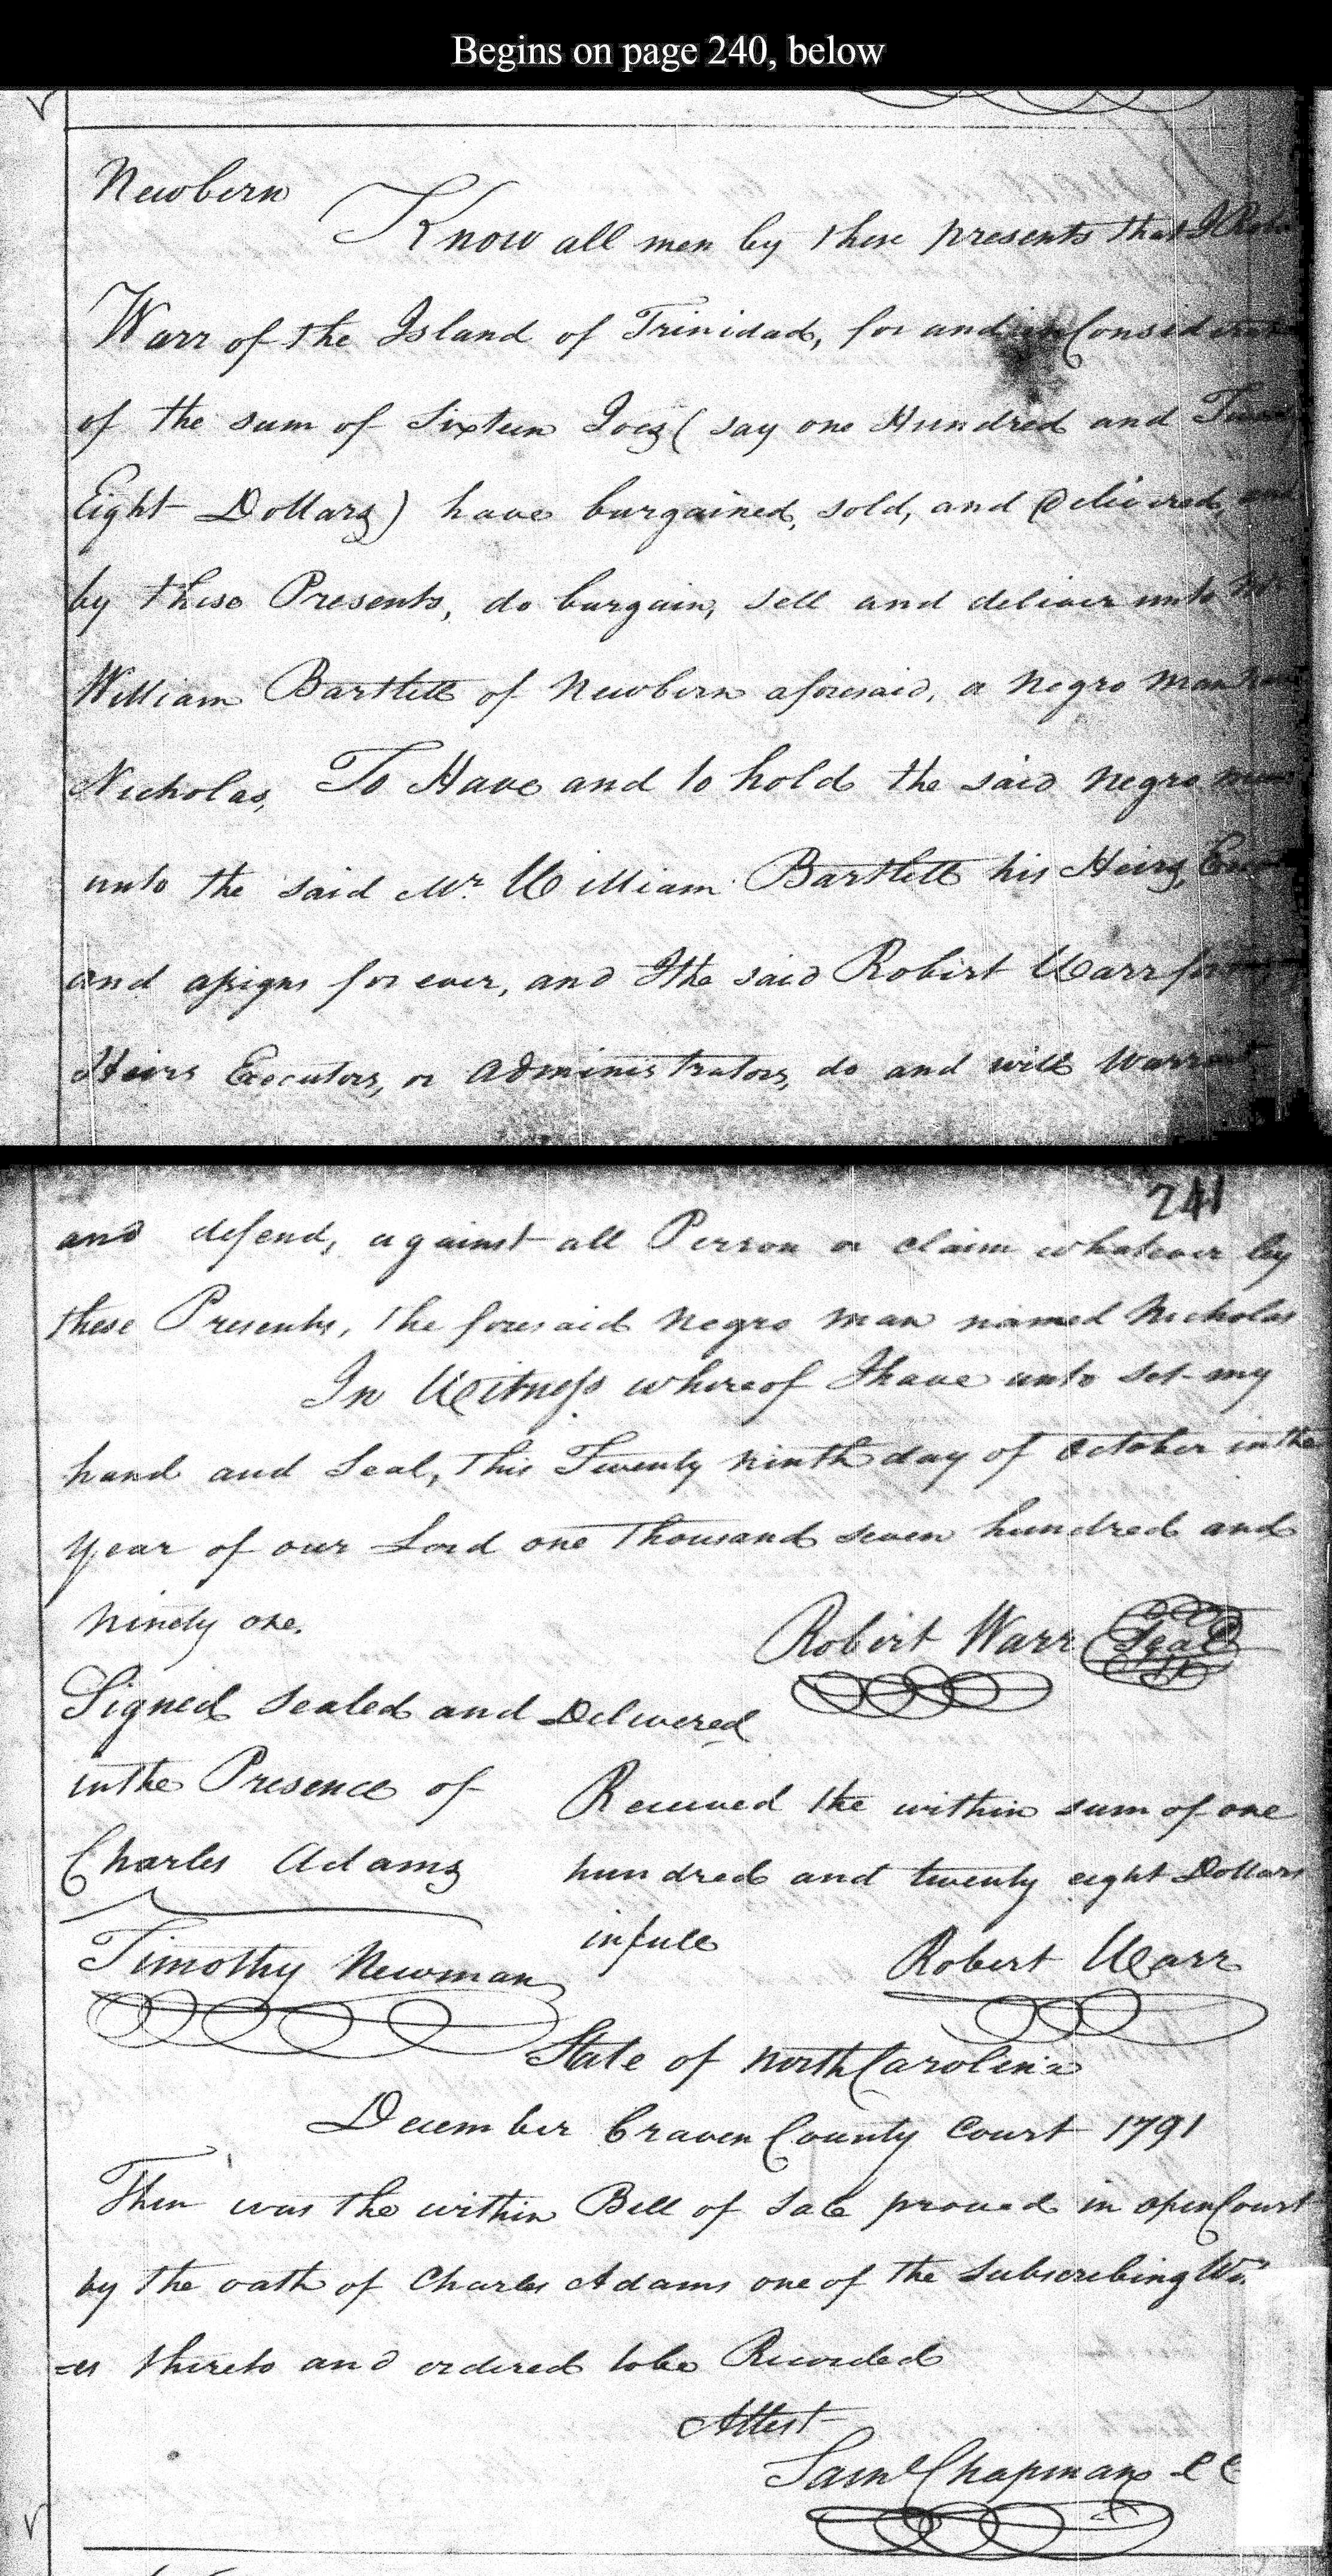 Begins on page 240, below
Newbern
Know all men by these presents that I
Warr of the Island of Trinidad, for and in
of the sum of Sixteen Joes (say one Hundred and
Eight Dollars) have bargained, sold, and Delivered, and
by these Presents, do bargain, sell and deliver unto Mr
William Bartlett of Newbern aforesaid, a Negro man
Nicholas, To Have and to hold the said Negro man
unto the said Mr. William Bartlett his Heirs,
and assigns for ever, and I the said Robert Warr
Heirs Executors, or Administrators, do and will Warrant
241
and defend, against all Person or claim whatever by
these Presents, the foresaid Negro man named Nicholas
In Witness whereof I have unto set my
hand and Seal, this Twenty ninth day of October in the
Year of our Lord one Thousand seven hundred and
Ninety one.
Robert Warr Seal
Signed Sealed and Delivered
in the Presence of
Charles Adams
Timothy Newman
Received the within sum of one
hundred and twenty eight Dollars
in full
Robert Warr
State of North Carolina
December Craven County Court 1791
Then was the within Bill of Sale proved in open Court
by the oath of Charles Adams one of the Subscribing
=es thereto and ordered to be Recorded
Attest
Saml Chapman CC